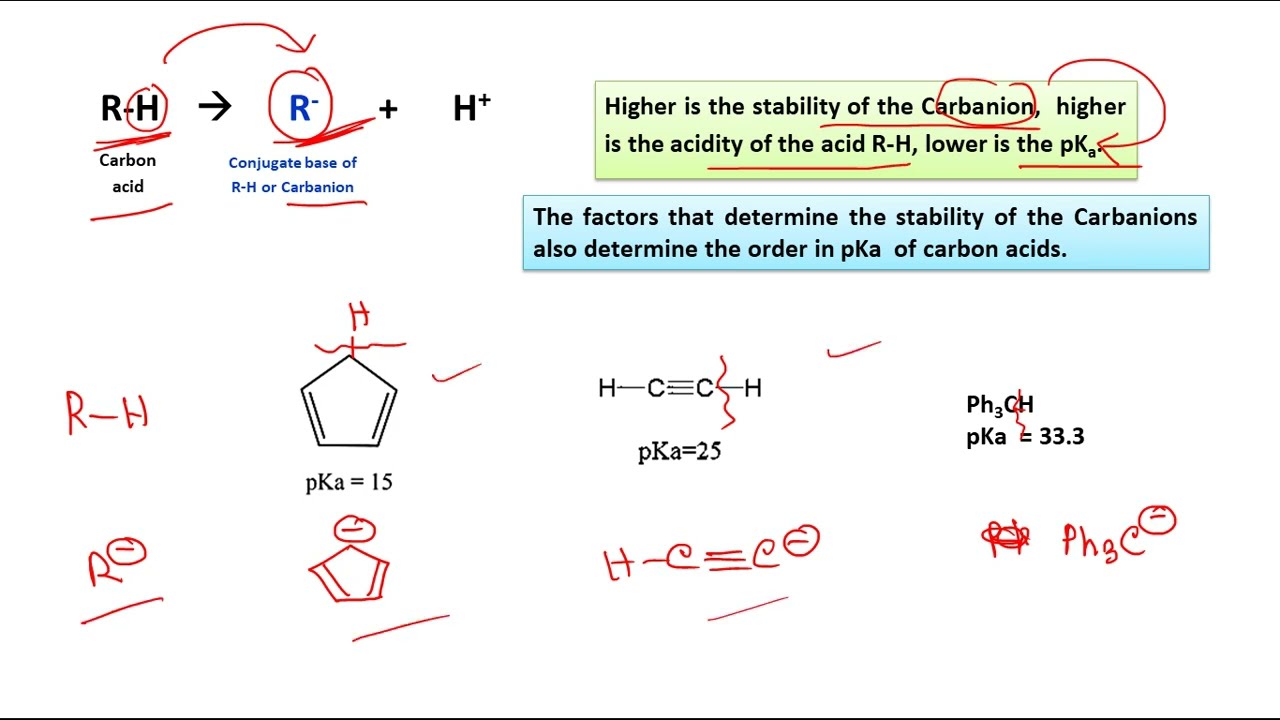 R-H → R- + H+
Carbon
acid
Conjugate base of
R-H or Carbanion
Higher is the stability of the Carbanion, higher
is the acidity of the acid R-H, lower is the pKa.
The factors that determine the stability of the Carbanions
also determine the order in pKa of carbon acids.
H
R-H
pKa = 15
H-C≡C-H
pKa=25
Ph3CH
pKa = 33.3
R⊖
⊖
H-C≡C⊖
Ph3C⊖